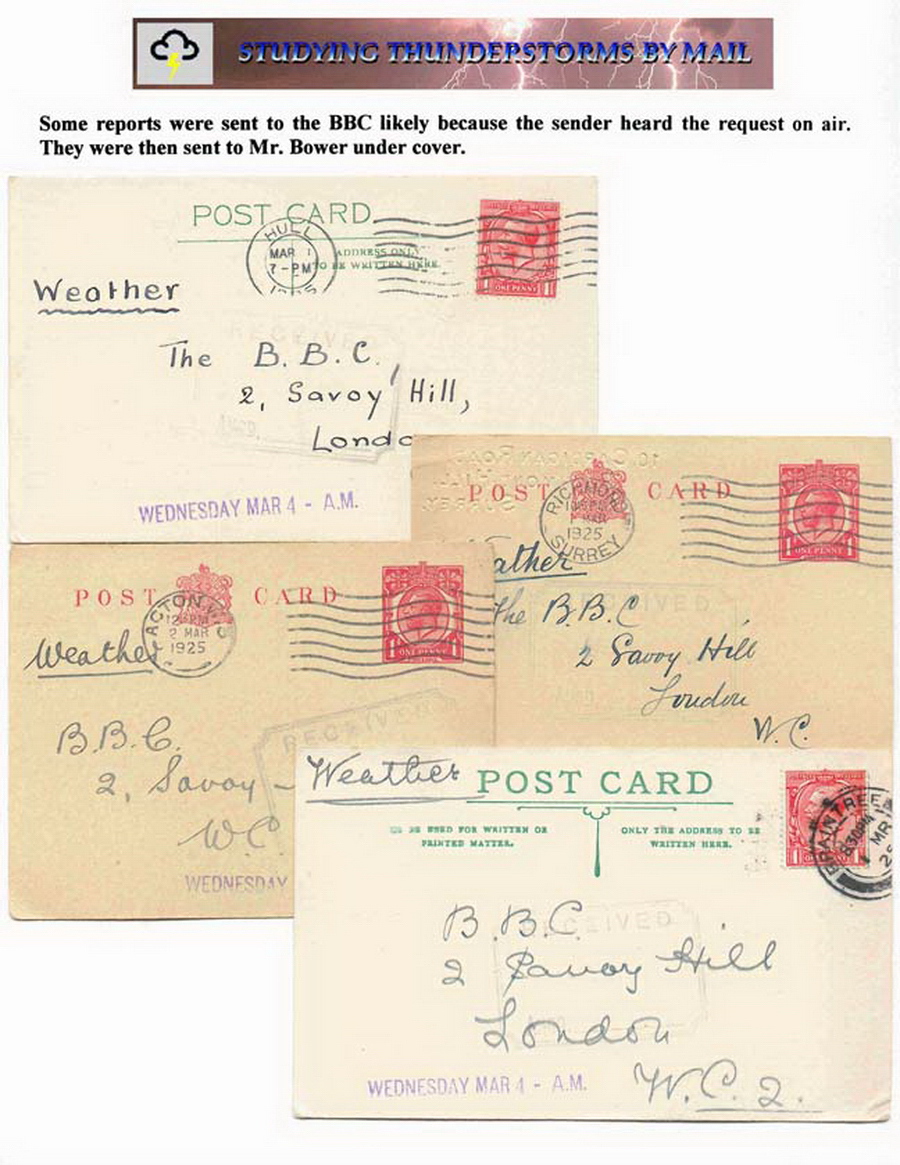 STUDYING THUNDERSTORMS BY MAIL
Some reports were sent to the BBC likely because the sender heard the request on air.
They were then sent to Mr. Bower under cover.
POST CARD
HULL
MAR 1
7-PM
1925
ADDRESS ONLY
TO BE WRITTEN HERE
ONE PENNY
Weather
RECEIVED
The B.B.C.
2, Savoy Hill,
Londo
WEDNESDAY MAR 4 - A.M.
POST CARD
RICHMOND
1 MAR
1925
SURREY
1 ONE PENNY 1
ather
RECEIVED
The B.B.C
2 Savoy Hill
London
W.C.
POST CARD
ACTON. W.
2 MAR
1925
1 ONE PENNY 1
Weather
RECEIVED
B.B.C.
2, Savoy
W.C
WEDNESDAY
Weather
POST CARD
BE USED FOR WRITTEN OR
PRINTED MATTER.
ONLY THE ADDRESS TO BE
WRITTEN HERE.
1 ONE PENNY
BRAINTREE
830PM
1 MR
25
RECEIVED
B.B.C.
2 Savoy Hill
London
W.C.2.
WEDNESDAY MAR 4 - A.M.